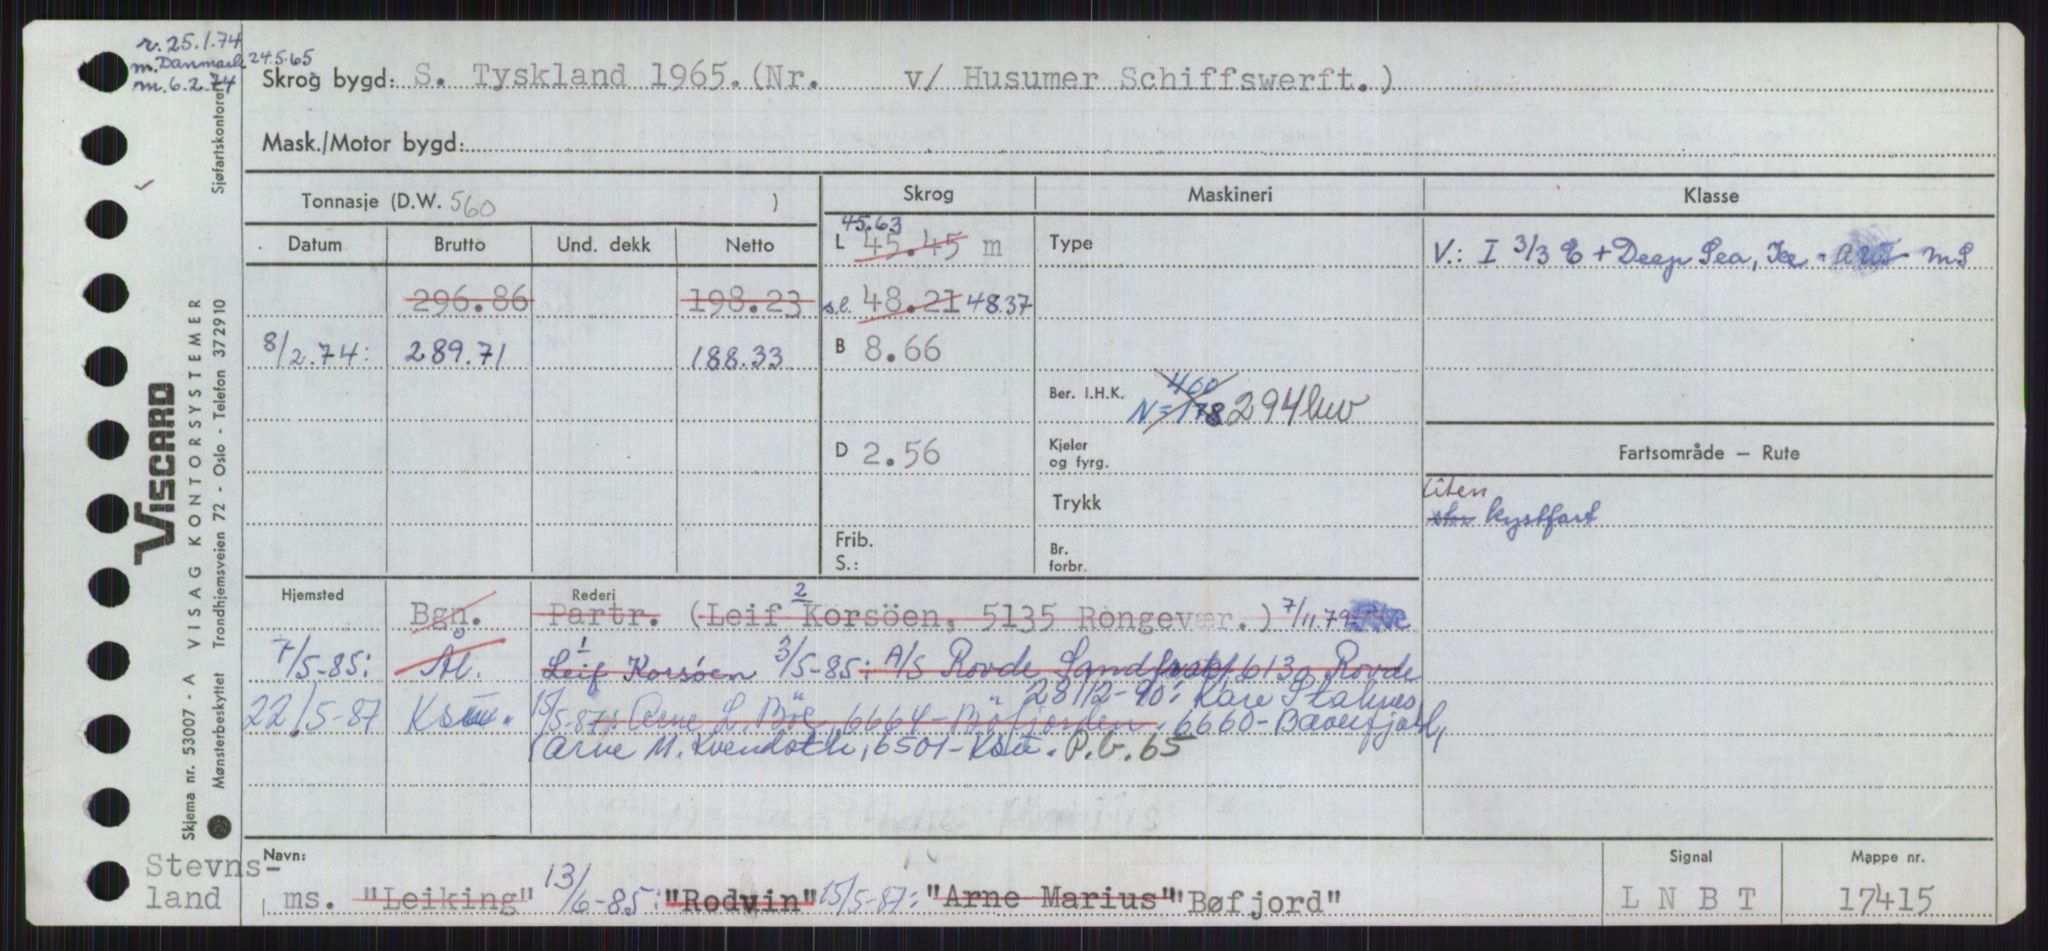 r. 25.1.74
m. Danmark 24.5.65
m. 6.2.74
Skrog bygd: S. Tyskland 1965. (Nr. v/ Husumer Schiffswerft.)
Mask./Motor bygd:
Tonnasje (D.W. 560 )
Skrog Maskineri Klasse
Datum Brutto Und. dekk Netto
45.63
L 45.45 m Type
V.: I 3/3 E + Deep Sea, Ice + MS
296.86 198.23 s.l. 48.21 48.37
8/2.74: 289.71 188.33 B 8.66
400
Ber. I.H.K. N=178 294 kw
D 2.56 Kjeler og fyrg.
Fartsområde – Rute
Trykk
Liten
stor kystfart
Frib.
S.:
Br. forbr.
Hjemsted Rederi
Bgn. Partr. (Leif 2 Korsöen, 5135 Rongevær.) 7/11.79
7/5-85: Ål. Leif 1 Korsøen 3/5-85: A/S Rovde 6130 Rovde
28/12-90: Kåre Stalnes
22/5-87 Ksu. 15/5-87: Arne L. Böe, 6664-Böfjorden. 6660-
Arne M. 6501-Ksu. P.b. 65
Stevns-
land
Navn:
ms. "Leiking" 13/6-85: "Rodvin" 15/5-87: "Arne Marius" "Bøfjord"
Signal
L N B T
Mappe nr.
17415
VISCARD
VISAG KONTORSYSTEMER
Skjema nr. 53007 - A
Mønsterbeskyttet Trondhjemsveien 72 - Oslo - Telefon 372910
Sjøfartskontoret